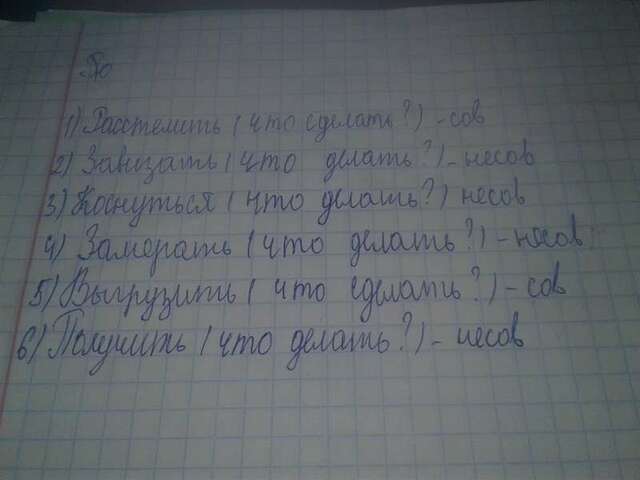 По
1) Расстелить (что сделать?) - сов
2) Завизать (что делать?) - несов
3) Коснуться (что делать?) несов
4) Замерать (что делать?) - несов
5) Выгрузить (что сделать?) - сов
6) Получить (что делать?) - несов